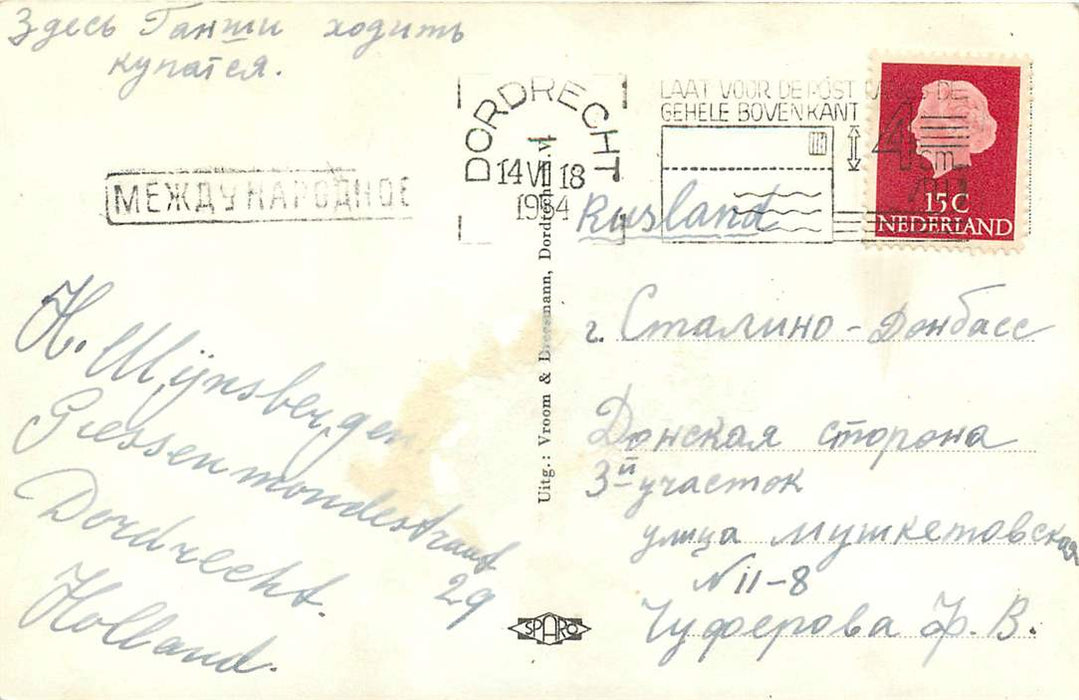 Здесь Ганши ходить
купатся.
МЕЖДУНАРОДНОЕ
DORDRECHT
14 VII 18
1964
LAAT VOOR DE POST VAN DE
GEHELE BOVENKANT
4
cm
VRIJ
15 C
NEDERLAND
Rusland
H. Wijnsbergen
Giessenmondestraat
29
Dordrecht.
Holland.
Uitg.: Vroom & Dreesmann, Dordrecht
SPARO
г. Сталино-Донбасс
Донская сторона
3й участок
улица Мушкетовская
N 11-8
Чуферова Ф. В.